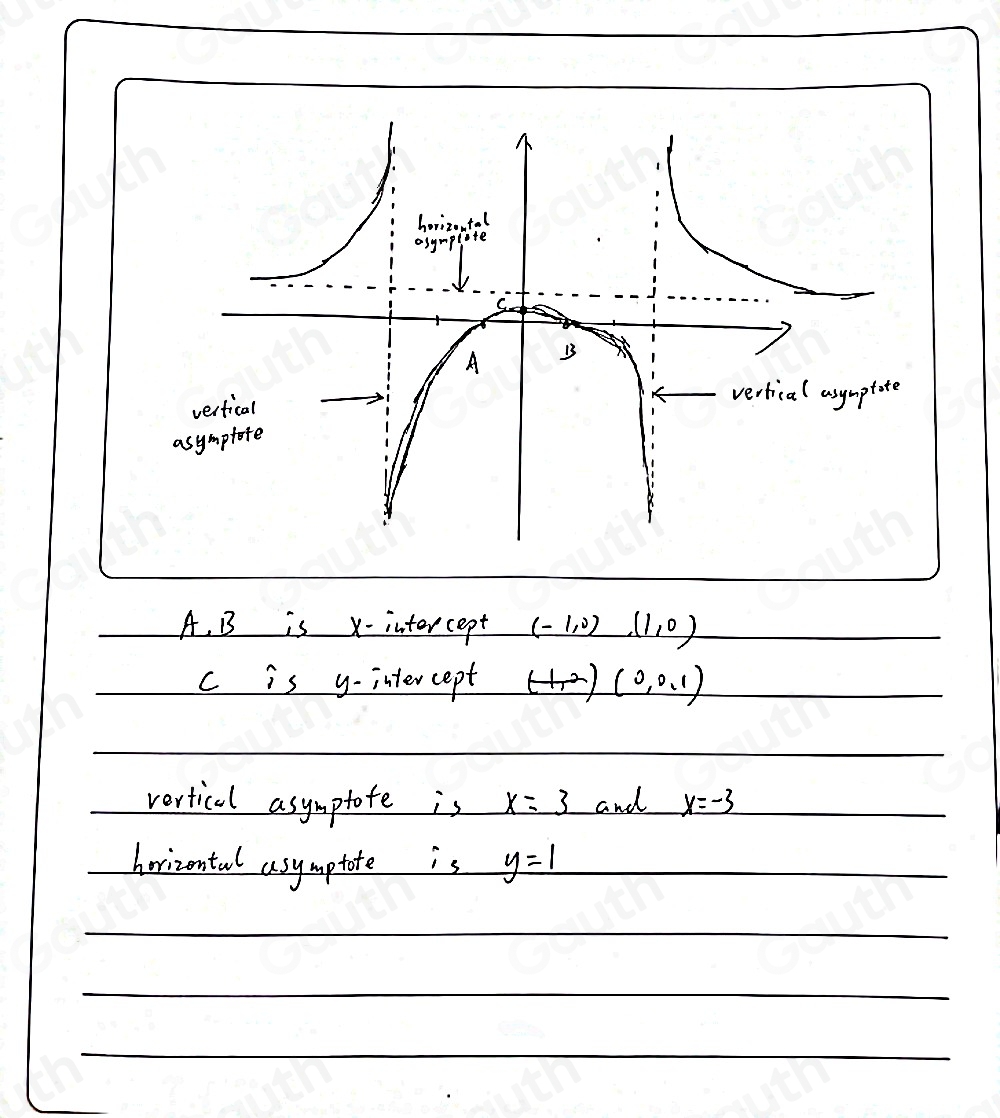 horizontal
asymptote
C
A
B
vertical
asymptote
vertical asymptote
A, B is x-intercept (-1,0) (1,0)
C is y-intercept (0,0.1)
vertical asymptote is x = 3 and x=-3
horizontal asymptote is y=1
Gauth